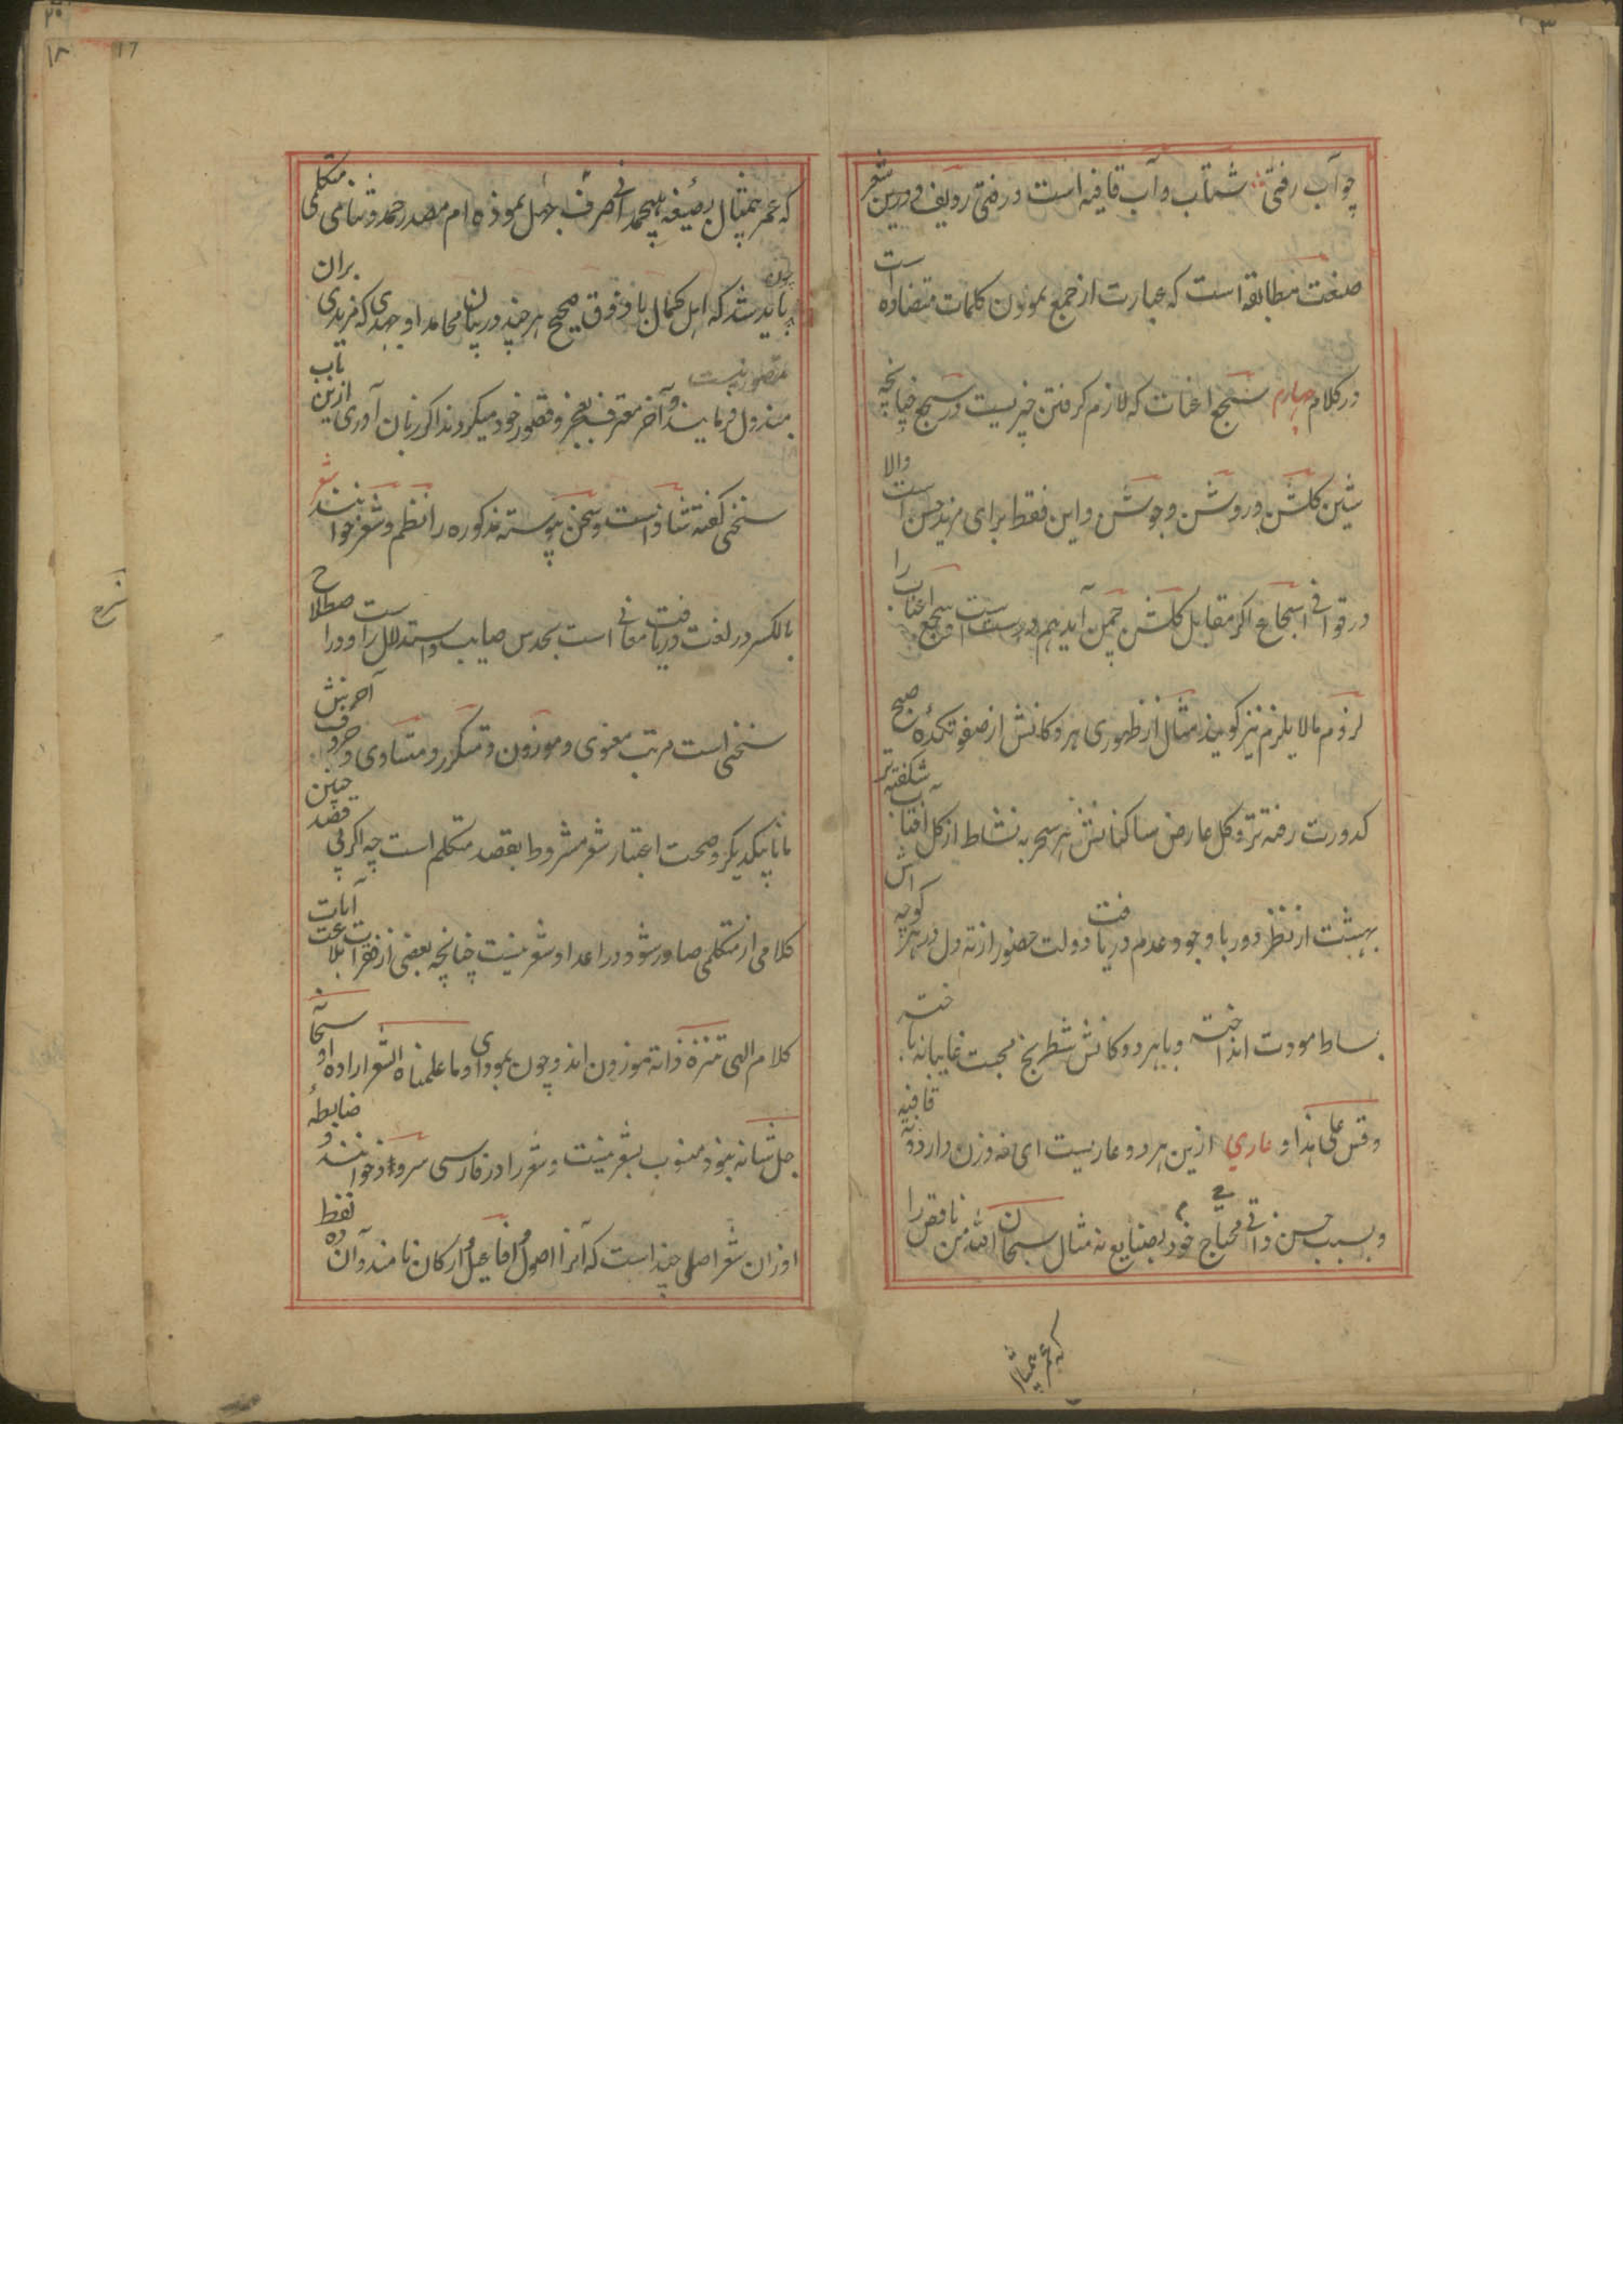 چو آب رفتی شتاب و آب قافیه است و رفتی ردیف و درین شعر
صنعت مطابقه است که عبارت از جمع نمودن کلمات متضاده است
در کلام چهارم سجع اعنات که لازم کرفتن چیزیست در سجع چنانچه
شین کلشن و روشن و جوشن و این فقط برای مزید حسن است والا
در قوافی اسجاع اکر مقابل کلشن چمن آید هم درست است و سجع اعنات را
لزوم مالا یلزم نیز کویند مثال از ظهوری هر دکانش از صفوتکدهٔ صبح
کدورت رفته تر و کل عارض ساکنانش هر سحر به نشاط از کل آفتاب شکفته تر
بهشت از نظر دور با وجود عدم دریافت دولت حضور از ته دل در هر کوچه اش
بساط مودت انداخته و با هر دوکانش شطرنج محبت غایبانه باخته
وقس علی هذا و عاری ازین هر دو عاریست ای نه وزن دارد و نه قافیه
و بسبب حسن ذاتی محتاج خود بصنایع نه مثال سبحان الله من ناقص را
که عمر بیمثال
که عمر بیمثال بصیغهٔ هیچمدانی صرف جهل نموده ام مصدر حمد و ثنای متکلمی
چون باید شد که اهل کمال با ذوق صحیح هر چند در بیان محامد او جهدی که مزیدی بران
متصور نیست مبذول فرمایند و آخر معترف بعجز و قصور خود میکردند اکر زبان آوری ازین باب
سخنی کفته شاذ است و سخن پیوسته مذکوره را نظم و شعر خوانند شعر
بالکسر در لغت دریافت معانی است بحدس صایب و استدلال راو در اصطلاح
سخنی است مرتب معنوی و موزون و متکرر و متساوی و حروف آخرینش
مانا بیکدیکر و صحت اعتبار شعر مشروط بقصد متکلم است چه اکر بی قصد چنین
کلامی از متکلمی صادر شود در اعداد شعر نیست چنانچه بعضی از فقرات بلاغت آیات
کلام الهی تنزه ذاته موزون اند و چون بمودای و ما علمناه الشعر اراده او سبحانه
جل شانه نبود منسوب بشعر نیست و شعر را در فارسی سرواد خوانند و ضابطهٔ
اوزان شعر اصلی چند است که آنرا اصول و افاعیل و ارکان نامند و آن ده لفظ